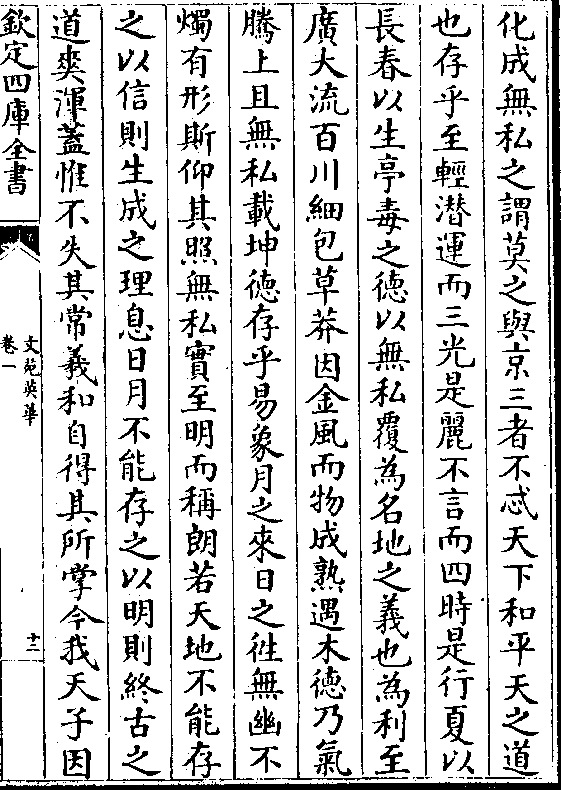 化成無私之謂莫之與京三者不忒天下和平天之道
也存乎至輕潜運而三光是麗不言而四時是行夏以
長春以生亭毒之德以無私覆為名地之義也為利至
廣大流百川細包草莽因金風而物成熟遇木德乃氣
騰上且無私載坤德存乎易象月之來日之徃無幽不
燭有形斯仰其照無私實至明而稱朗若天地不能存
之以信則生成之理息日月不能存之以明則終古之
道爽渾蓋惟不失其常羲和自得其所掌今我天子因
欽定四庫全書
文苑英華
卷一
十三